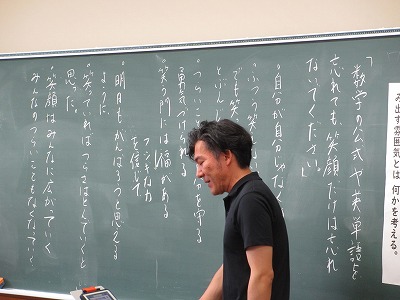 み出す雰囲気とは 何かを考える。
「数学の公式や英単語を
忘れても、笑顔だけは忘れ
ないでください。」
“自分が自分じゃなく
“ふつうの笑
でも笑
とぶん
“つらい
を守る
勇気づけられる
“笑う門には福がある
を信じて
“明日もがんばろうと思える
ように。
“笑っていればつらさはとんでいくと
思った。
“笑顔はみんなに広がっていく
みんなのつらいこともなくなっていく